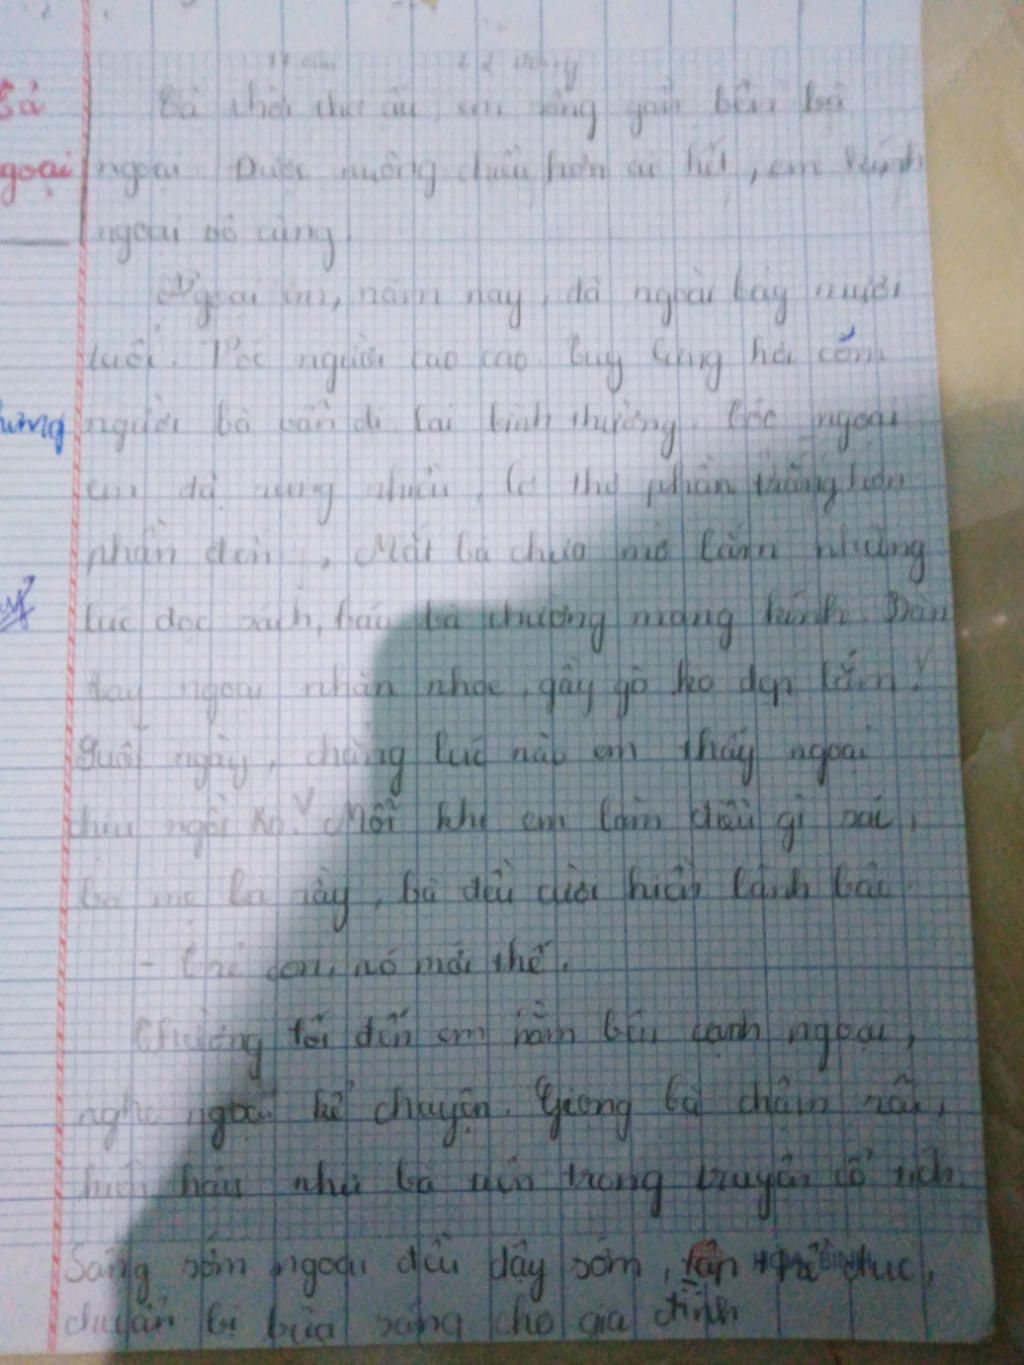 Cả thời thơ ấu, em sống gần bên bà
ngoại. Được nuông chiều hơn ai hết, em kính
ngoại vô cùng.
Ngoại em, năm nay, đã ngoài bảy mươi
tuổi. Vóc người cao cao. Tuy lưng hơi còm
người bà vẫn đi lại bình thường. Tóc ngoại
em đã rụng nhiều, lơ thơ phần trắng hơn
phần đen, Mắt bà chưa mờ lắm nhưng
lúc đọc sách, báo bà thường mang kính. Bàn
tay ngoại nhăn nheo, gầy gò ko đẹp lắm.
Suốt ngày, chẳng lúc nào em thấy ngoại
chịu ngồi ko. Mỗi khi em làm điều gì sai,
ba mẹ la rầy, bà đều cười hiền lành bảo
- Trẻ con, nó mới thế.
Thường tối đến em nằm bên cạnh ngoại,
nghe ngoại kể chuyện. Giọng bà chậm rãi,
hiền hậu như bà tiên trong truyện cổ tích.
Sáng sớm ngoại đều dậy sớm, tập thể dục,
chuẩn bị bữa sáng cho gia đình
Bà
ngoại